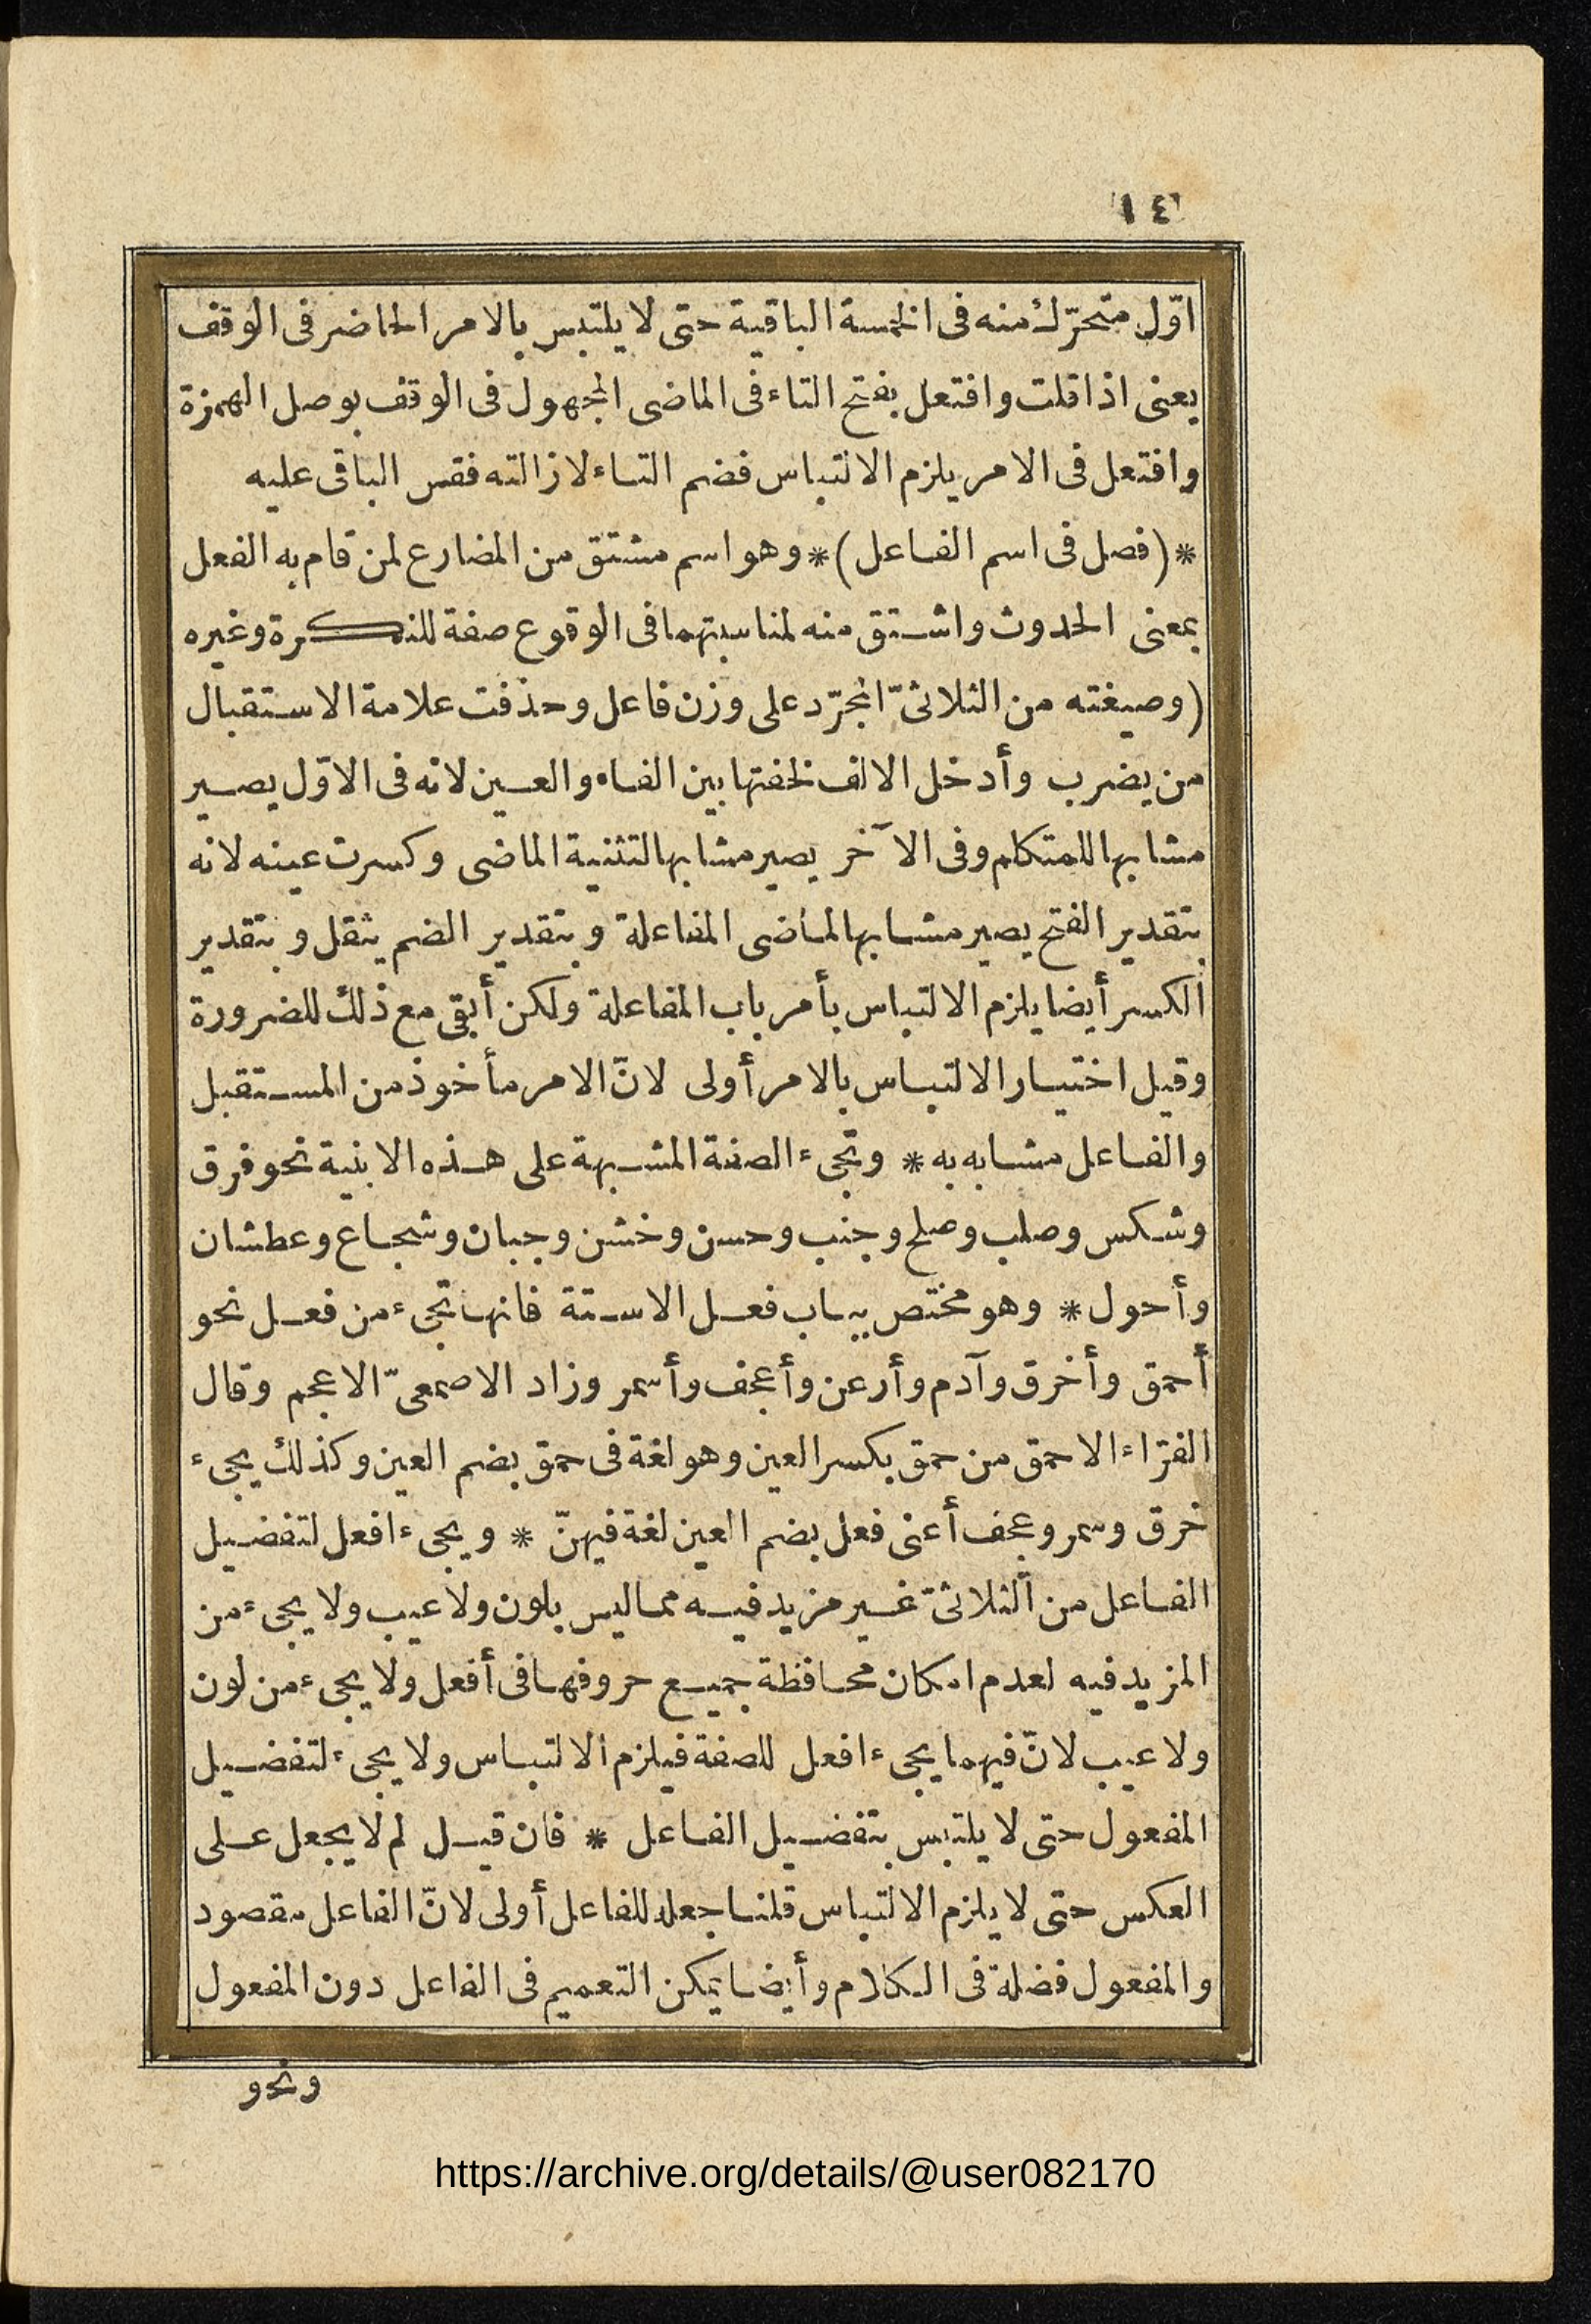 ١٤
اوّل متحرّك منه فى الخمسة الباقية حتى لا يلتبس بالامر الحاضر فى الوقف
يعنى اذا قلت وافتعل بفتح التاء فى الماضى المجهول فى الوقف بوصل الهمزة
وافتعل فى الامر يلزم الالتباس فضم التاء لازالته فقس الباقى عليه
* (فصل فى اسم الفاعل) * وهو اسم مشتق من المضارع لمن قام به الفعل
بمعنى الحدوث واشتق منه لمناسبتهما فى الوقوع صفة للنكرة وغيره
(وصيغته من الثلاثىّ المجرّد على وزن فاعل وحذفت علامة الاستقبال
من يضرب وأدخل الالف لخفتها بين الفاء والعين لانه فى الاوّل يصير
مشابها للمتكلم وفى الآخر يصير مشابها لتثنية الماضى وكسرت عينه لانه
بتقدير الفتح يصير مشابها لماضى المفاعلة وبتقدير الضم يثقل وبتقدير
الكسر أيضا يلزم الالتباس بأمر باب المفاعلة ولكن أبقى مع ذلك للضرورة
وقيل اختيار الالتباس بالامر أولى لانّ الامر مأخوذ من المستقبل
والفاعل مشابه به * وتجىء الصفة المشبهة على هذه الابنية نحو فرق
وشكس وصلب وملح وجنب وحسن وخشن وجبان وشجاع وعطشان
وأحول * وهو مختص بباب فعل الاستة فانها تجىء من فعل نحو
أحمق وأخرق وآدم وأرعن وأعجف وأسمر وزاد الاصمعىّ الاعجم وقال
الفرّاء الاحمق من حمق بكسر العين وهو لغة فى حمق بضم العين وكذلك يجىء
خرق وسمر وعجف أعنى فعل بضم العين لغة فيهنّ * ويجىء افعل لتفضيل
الفاعل من الثلاثىّ غير مزيد فيه مما ليس بلون ولا عيب ولا يجىء من
المزيد فيه لعدم امكان محافظة جميع حروفها فى أفعل ولا يجىء من لون
ولا عيب لانّ فيهما يجىء افعل للصفة فيلزم الالتباس ولا يجىء لتفضيل
المفعول حتى لا يلتبس بتفضيل الفاعل * فان قيل لم لا يجعل على
العكس حتى لا يلزم الالتباس قلنا جعله للفاعل أولى لانّ الفاعل مقصود
والمفعول فضلة فى الكلام وأيضا يمكن التعميم فى الفاعل دون المفعول
ونحو
https://archive.org/details/@user082170